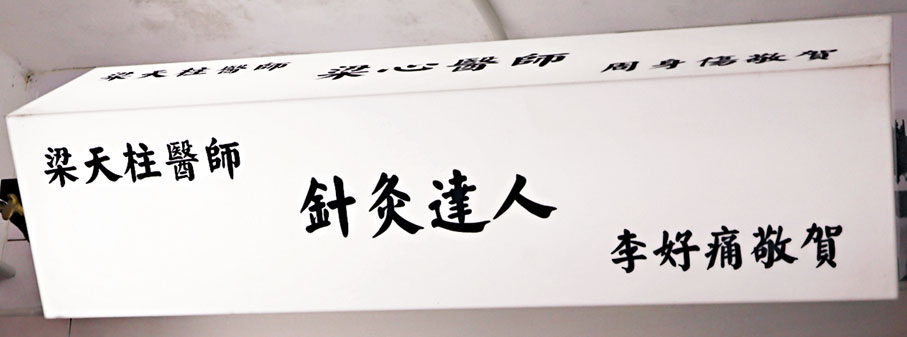 梁天柱醫師 梁心醫師 周身傷敬賀
梁天柱醫師
針灸達人
李好痛敬賀